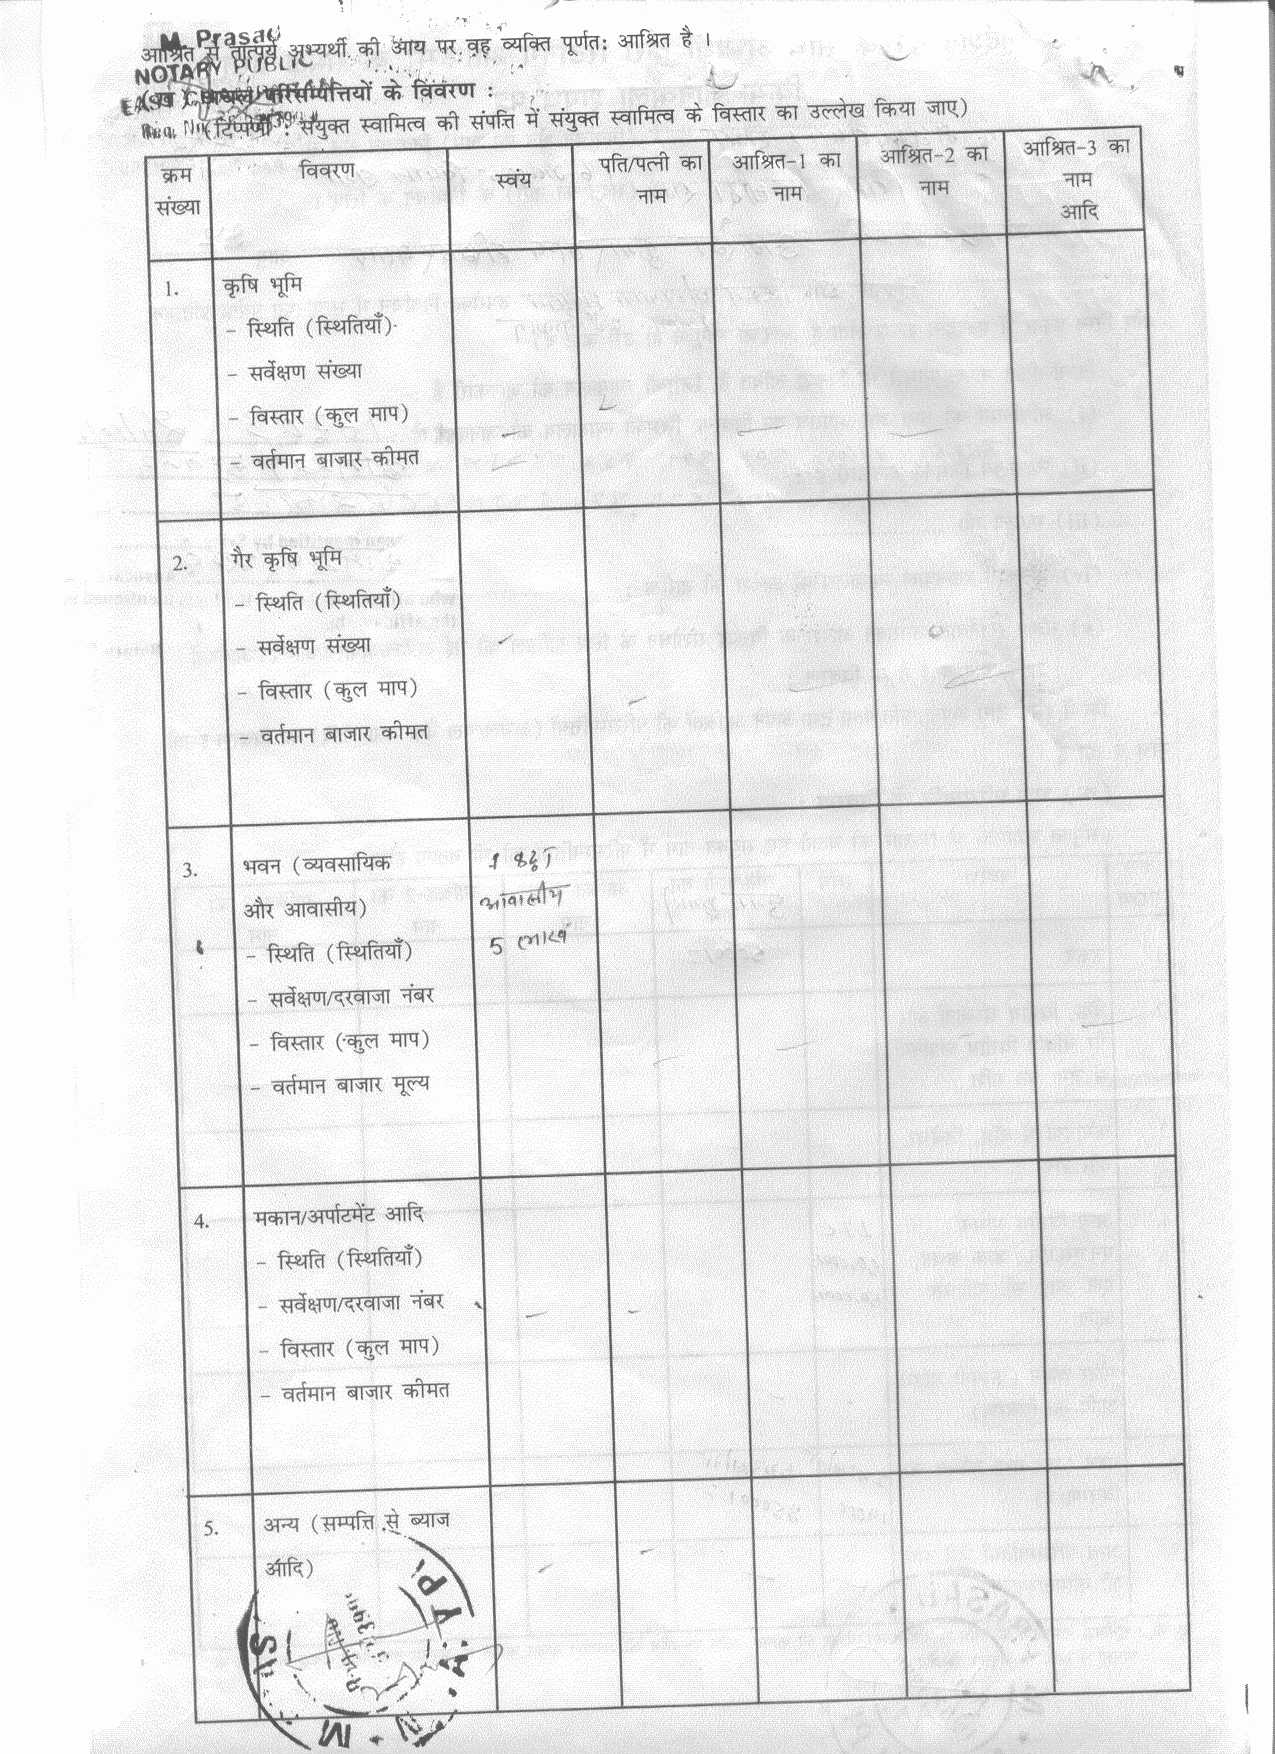 M. Prasad
आश्रित से तात्पर्य अभ्यर्थी की आय पर वह व्यक्ति पूर्णत: आश्रित है ।
NOTARY PUBLIC
(ख) अचल परिसम्पत्तियों के विवरण :
(टिप्पणी : संयुक्त स्वामित्व की संपत्ति में संयुक्त स्वामित्व के विस्तार का उल्लेख किया जाए)
क्रम संख्या विवरण स्वंय पति/पत्नी का नाम आश्रित-1 का नाम आश्रित-2 का नाम आश्रित-3 का नाम आदि
1. कृषि भूमि
- स्थिति (स्थितियाँ)
- सर्वेक्षण संख्या
- विस्तार (कुल माप)
- वर्तमान बाजार कीमत
2. गैर कृषि भूमि
- स्थिति (स्थितियाँ)
- सर्वेक्षण संख्या
- विस्तार (कुल माप)
वर्तमान बाजार कीमत
3. भवन (व्यवसायिक
और आवासीय) आवासीय
- स्थिति (स्थितियाँ) 5 लाख
- सर्वेक्षण/दरवाजा नंबर
- विस्तार (कुल माप)
- वर्तमान बाजार मूल्य
4. मकान/अर्पाटमेंट आदि
- स्थिति (स्थितियाँ)
- सर्वेक्षण/दरवाजा नंबर
- विस्तार (कुल माप)
- वर्तमान बाजार कीमत
5. अन्य (सम्पत्ति से ब्याज
आदि)